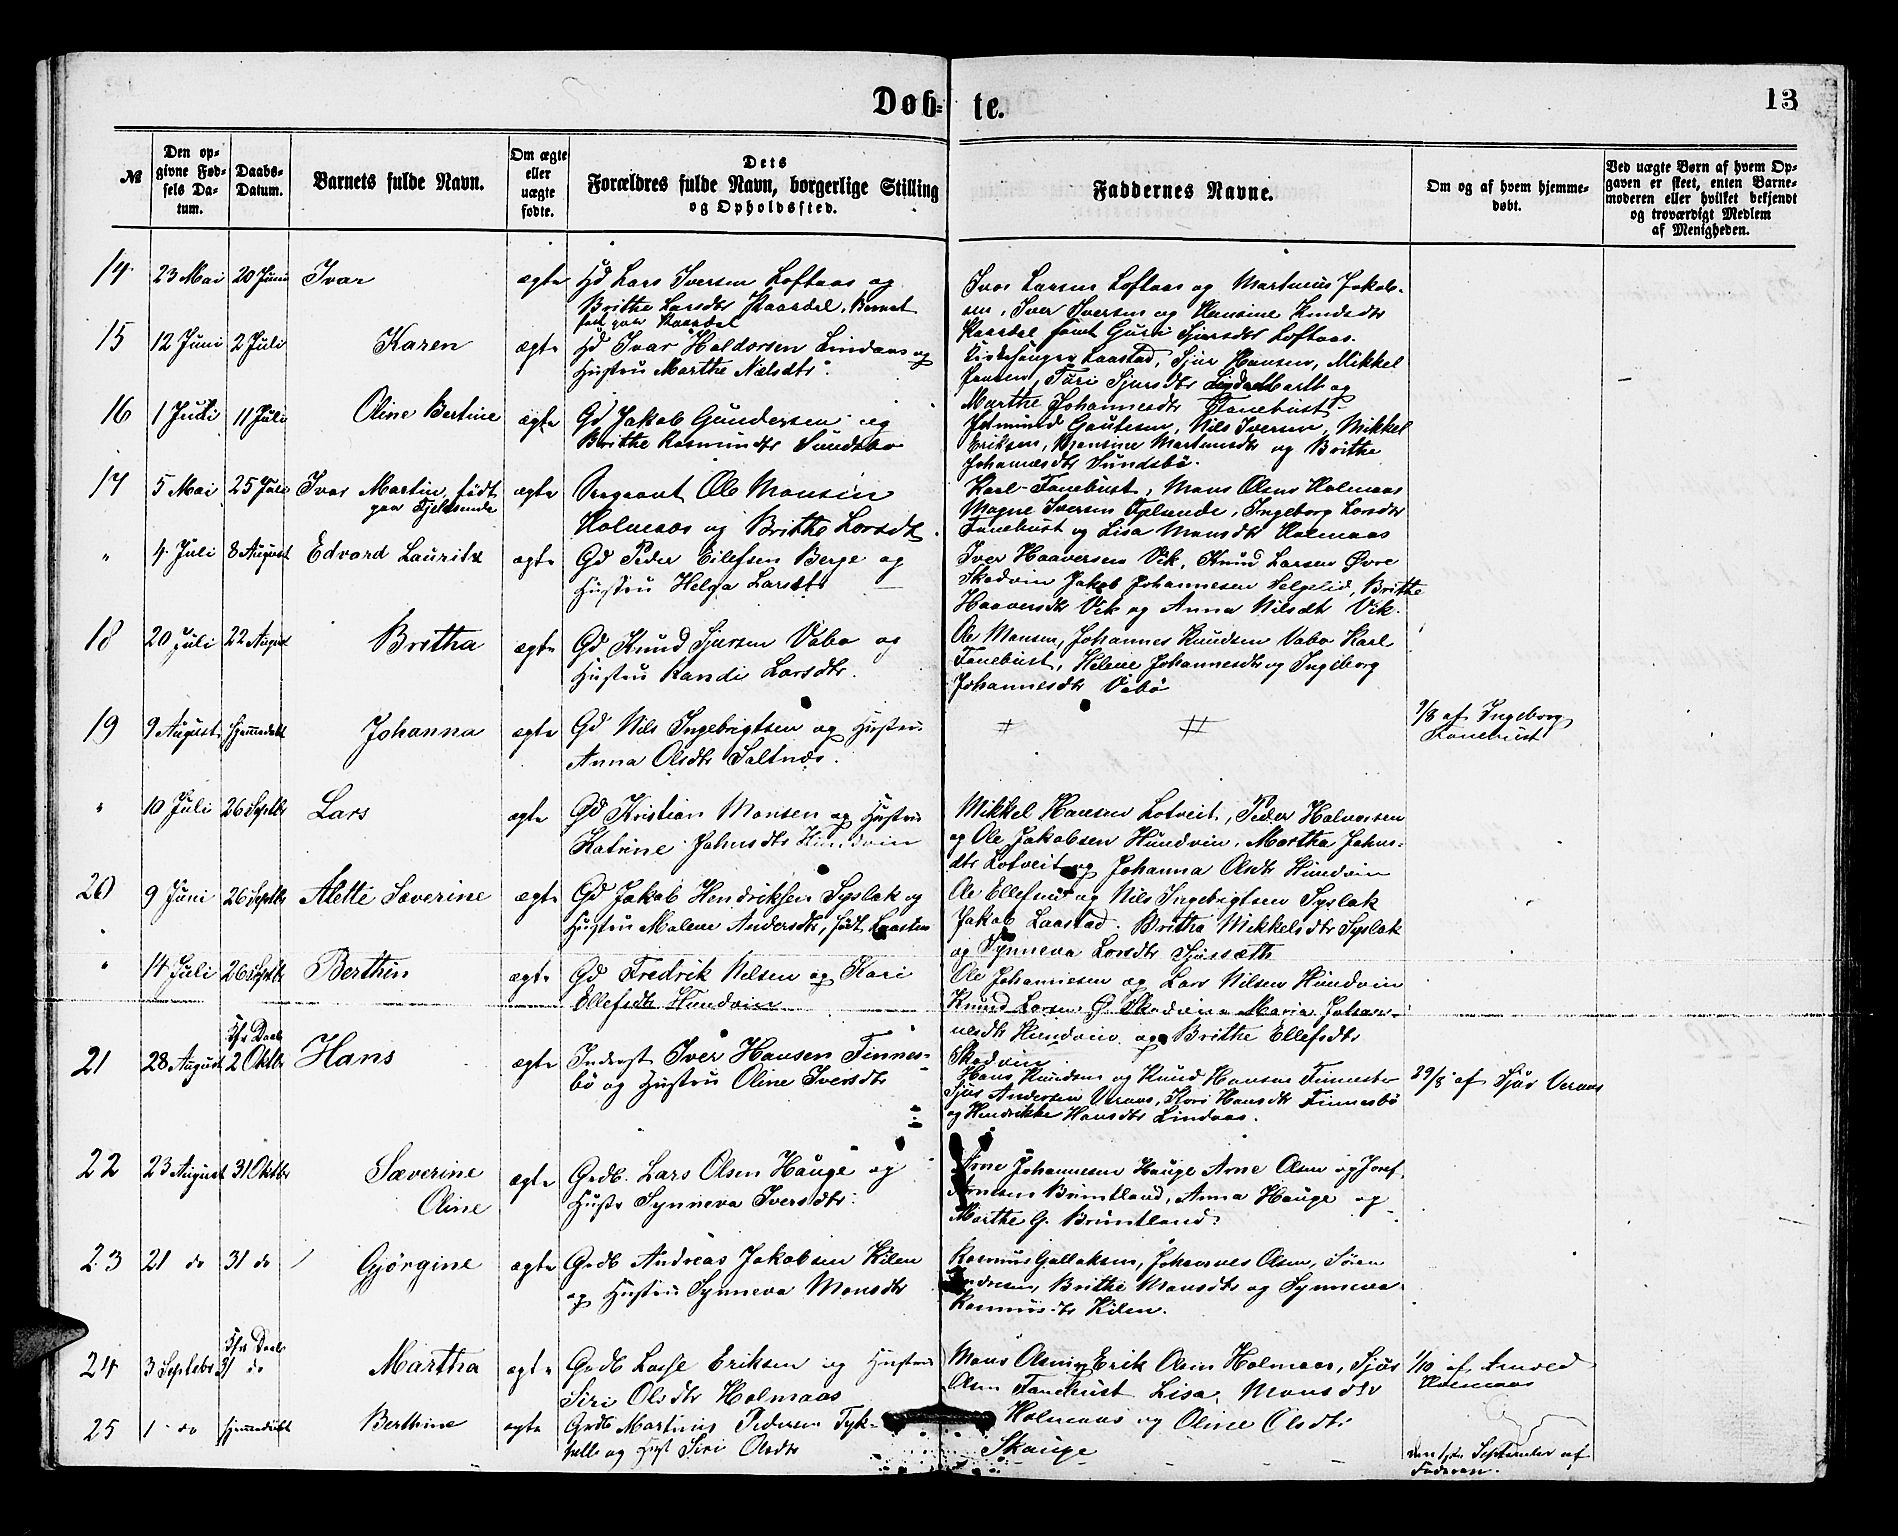 Døb- te.
13
№
Den opgivne Fødsels Datum.
Daabs-Datum.
Barnets fulde Navn.
Om ægte eller uægte fødte.
Dets
Forældres fulde Navn, borgerlige Stilling
og Opholdssted.
Faddernes Navne.
Om og af hvem hjemmedøbt.
Ved uægte Børn af hvem Opgaven er skeet, enten Barnemoderen eller hvilket bekjendt og troværdigt Medlem af Menigheden.
14 23 Mai 20 Juni Ivar ægte Gd Lars Iversen Loftaas og
Brithe Larsdtr
Ivar Larsen Loftaas og Martinus Jakob-
sen, Iver Iversen og Hansine Knudsdtr
samt Guri Sjursdtr Loftaas.
15 12 Juni 2 Juli Karen ægte Gd Ivar Haldorsen Lindaas og
Hustru Marthe Nilsdtr.
Laastad, Sjur Hansen, Mikkel
Hansen, Turi Sjursdtr og
Marthe Johannesdtr Fanebust.
16 1 Juli 11 Juli Oline Bertine ægte Gd Jakob Gundersen og
Brithe Rasmusdtr Sundsbø
Gautesen, Nils Iversen, Mikkel
Eriksen, Hansine Martinusdtr og Brithe
Johannesdtr Sundsbö.
17 5 Mai 25 Juli Ivar Martin, födt
paa
ægte Sergeant Ole Monsen
Holmaas og Brithe Larsdtr.
Karl Fanebust, Mons Olsen Holmaas
Magne Iversen Ingeborg Larsdtr
Fanebust og Lisa Monsdtr Holmaas
" 4 Juli 8 August Edvard Lauritz ægte Gd Peder Eilefsen Berge og
Hustru Helga Larsdtr
Iver Haaversen Vik, Knud Larsen Øvre
Skodvin Jakob Johannesen Helgelid, Brithe
Haaversdtr Vik og Anna Nilsdtr Vik.
18 20 Juli 22 August Britha ægte Gd Knud Sjursen Vabø og
Hustru Randi Larsdtr.
Ole Monsen, Johannes Knudsen Vabø Karl
Fanebust, Helene Johannesdtr og Ingeborg
Johannesdtr Vabö
19 9 August Hjemmedøbt Johanna ægte Gd Nils Ingebrigtsen og Hustru
Anna Olsdtr Saltnæs.
9/8 af Ingeborg
Fanebust
" 10 Juli 26 Septbr Lars ægte Gd Kristian Monsen og Hustru
Katrine Johnsdtr Hundvin
Mikkel Hansen Lotveit, Peder Halvorsen
og Ole Jakobsen Hundvin, Martha Johns-
dtr Lotveit og Johanna Olsdtr Hundvin
20 9 Juni 26 Septbr Alette Severine ægte Gd Jakob Hendriksen Syslak og
Hustru Malene Andersdtr, födt Laastad
Ole Ellefsen og Nils Ingebrigtsen Syslak
Jakob Laastad. Britha Mikkelsdtr Syslak
og Synneva Larsdtr Sjursæth
" 14 Juli 26 Septbr Berthin ægte Gd Fredrik Nilsen og Kari
Ellefsdtr Hundvin
Ole Johannesen og Lars Nilsen Hundvin
Knud Larsen Ø Skodvin Maria Johan-
nesdtr Hundvin og Brithe Ellefsdtr
Skodvin
21 28 August 2 Oktbr Hans ægte Inderst Iver Hansen Finnes-
bö og Hustru Oline Iversdtr
Hans Knudsen og Knud Hansen Finnesbø
Sjur Andersen Veraas, Kari Hansdtr Finnesbø
og Hendrikke Hansdtr Lindaas.
29/8 af Sjur Veraas
22 23 August 31 Oktbr Sæverine
Oline
ægte Grdb. Lars Olsen Hauge og
Hustr Synneva Iversdtr.
Arne Johannesen Hauge Arne Olsen og Josef
Arnesen Bruntland, Anna Hauge og
Marthe G. Bruntland
23 21 do 31 do Gjørgine ægte Grdb Andreas Jakobsen Kilen
og Hustru Synneva Monsdtr
Rasmus Gullaksen, Johannes Olsen, Søren
Andersen, Brithe Monsdtr og Synneva
Rasmusdtr Kilen.
24 3 Septebr 31 do Martha ægte Grdb Lasse Eriksen og Hustru
Siri Olsdtr Holmaas
Mons Olsen og Erik Olsen Holmaas, Sjur
Olsen Fanebust Lisa Monsdtr
Holmaas og Oline Olsdtr
Skauge
1/10 af
Holmaas
25 1 do Hjemmedøbt Berthine ægte Grdb Martinus Pedersen
og Hust Siri Olsdtr
September af
Faderen.